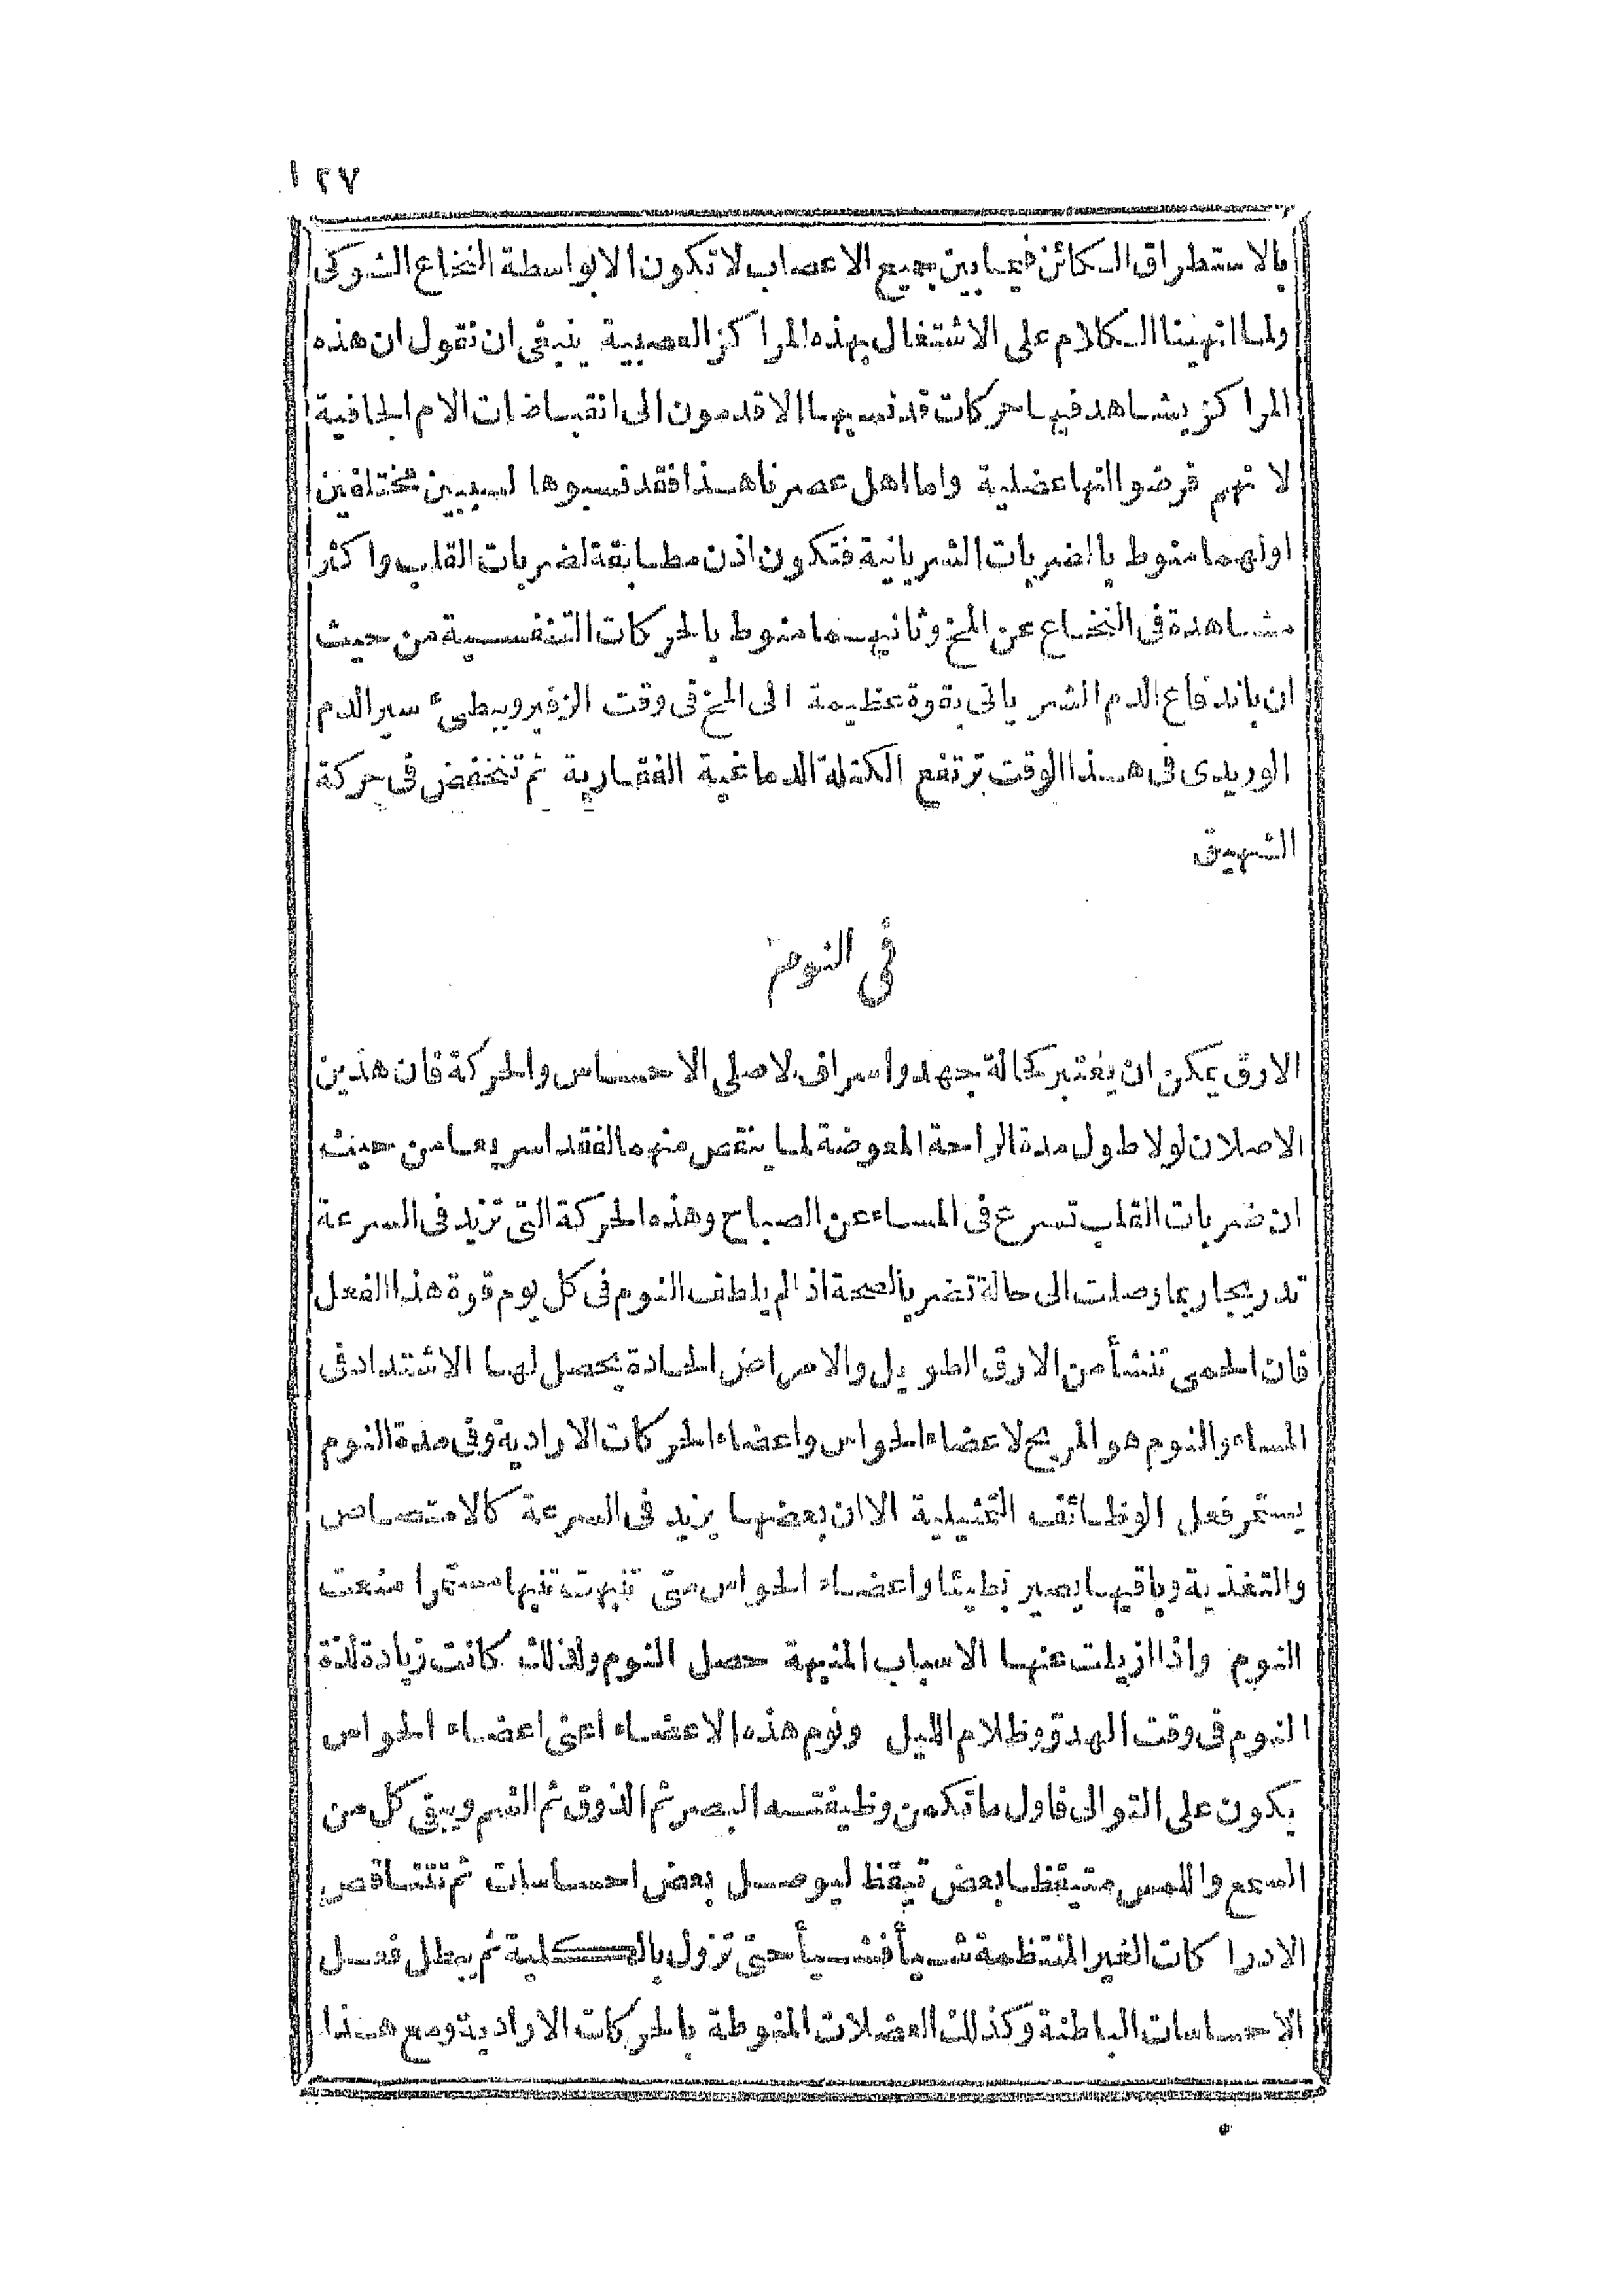 ١٢٧
بالاستطراق الكائن فيما بين جميع الاعصاب لا تكون الا بواسطة النخاع الشوكى
ولما انهينا الكلام على الاشتغال بهذه المراكز العصبية ينبغى ان نقول ان هذه
المراكز يشاهد فيها حركات قد نسبها الاقدمون الى انقباضات الام الجافية
لانهم فرضوا انها عضلية واما اهل عصرنا هذا فقد نسبوها لسببين مختلفين
اولهما منوط بالضربات الشريانية فتكون اذن مطابقة لضربات القلب واكثر
مشاهدة فى النخاع عن المخ وثانيهما منوط بالحركات التنفسية من حيث
ان باندفاع الدم الشريانى بقوة عظيمة الى المخ فى وقت الزفير ويبطئ سير الدم
الوريدى فى هذا الوقت ترتفع الكتلة الدماغية الفقارية ثم تنخفض فى حركة
الشهيق
فى النوم
الارق يمكن ان يعتبر كحالة جهد واسراف لاصلى الاحساس والحركة فان هذين
الاصلان لولا طول مدة الراحة المعوضة لما ينقص منهما لفقدا سريعا من حيث
ان ضربات القلب تسرع فى المساء عن الصباح وهذه الحركة التى تزيد فى السرعة
تدريجا ربما وصلت الى حالة تضر بالصحة اذ لم يلطف النوم فى كل يوم قوة هذا الفعل
فان الحمى تنشأ من الارق الطويل والامراض الحادة يحصل لها الاشتداد فى
المساء والنوم هو المريح لاعضاء الحواس واعضاء الحركات الارادية وفى مدة النوم
يستمر فعل الوظائف التمثيلية الا ان بعضها يزيد فى السرعة كالامتصاص
والتغذية وباقيها يصير بطيئا واعضاء الحواس متى تنبهت تنبها مستمرا منعت
النوم واذا ازيلت عنها الاسباب المنبهة حصل النوم ولذلك كانت زيادة لذة
النوم فى وقت الهدو وظلام الليل ونوم هذه الاعضاء اعنى اعضاء الحواس
يكون على التوالى فاول ما تكمن وظيفته البصر ثم الذوق ثم الشم ويبقى كل من
السمع واللمس متيقظا بعض تيقظ ليوصل بعض احساسات ثم تتناقص
الادراكات الغير المنتظمة شيأ فشيأ حتى تزول بالكلية ثم يبطل فعل
الاحساسات الباطنة وكذلك العضلات المنوطة بالحركات الارادية ومع هذا